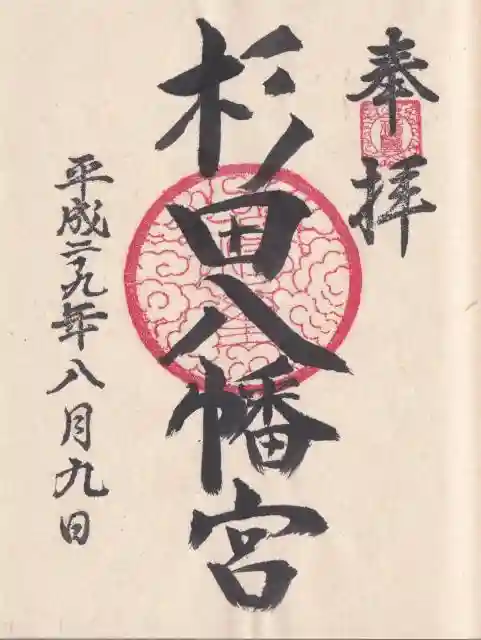 奉拝
杉田八幡宮
平成二十九年八月九日